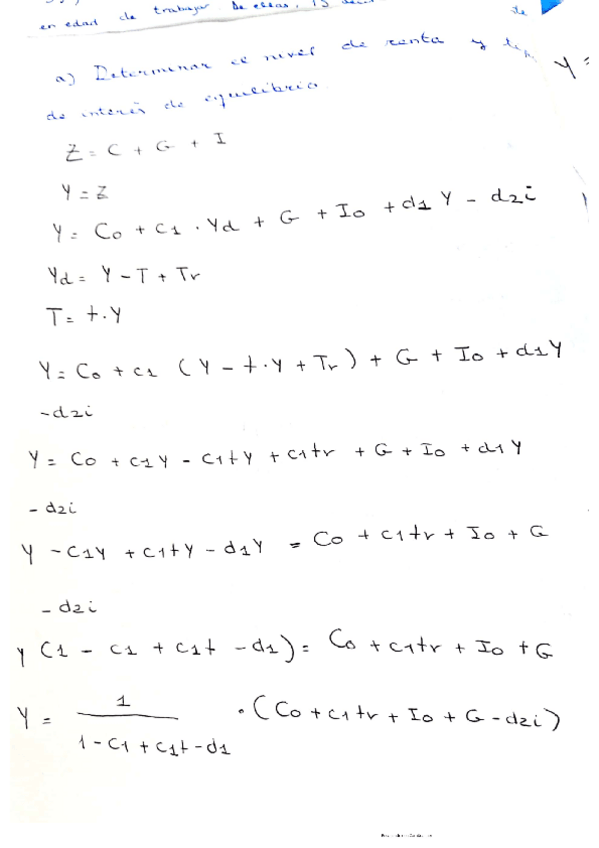 en edad de trabajar De ellas, 15 de
a) Determinar el nivel de renta y tip
Y =
de interés de equilibrio
Z = C + G + I
Y = Z
Y = Co + C1 . Yd + G + Io + d1 Y - d2i
Yd = Y - T + Tr
T = t.Y
Y = Co + c1 (Y - t.Y + Tr) + G + Io + d1Y
-d2i
Y = Co + c1Y - C1tY + c1tr + G + Io + d1Y
- d2i
Y - C1Y + c1tY - d1Y = Co + c1tr + Io + G
- d2i
Y (1 - c1 + c1t - d1) = Co + c1tr + Io + G
Y = 1 / (1 - C1 + c1t - d1) . (Co + c1tr + Io + G - d2i)